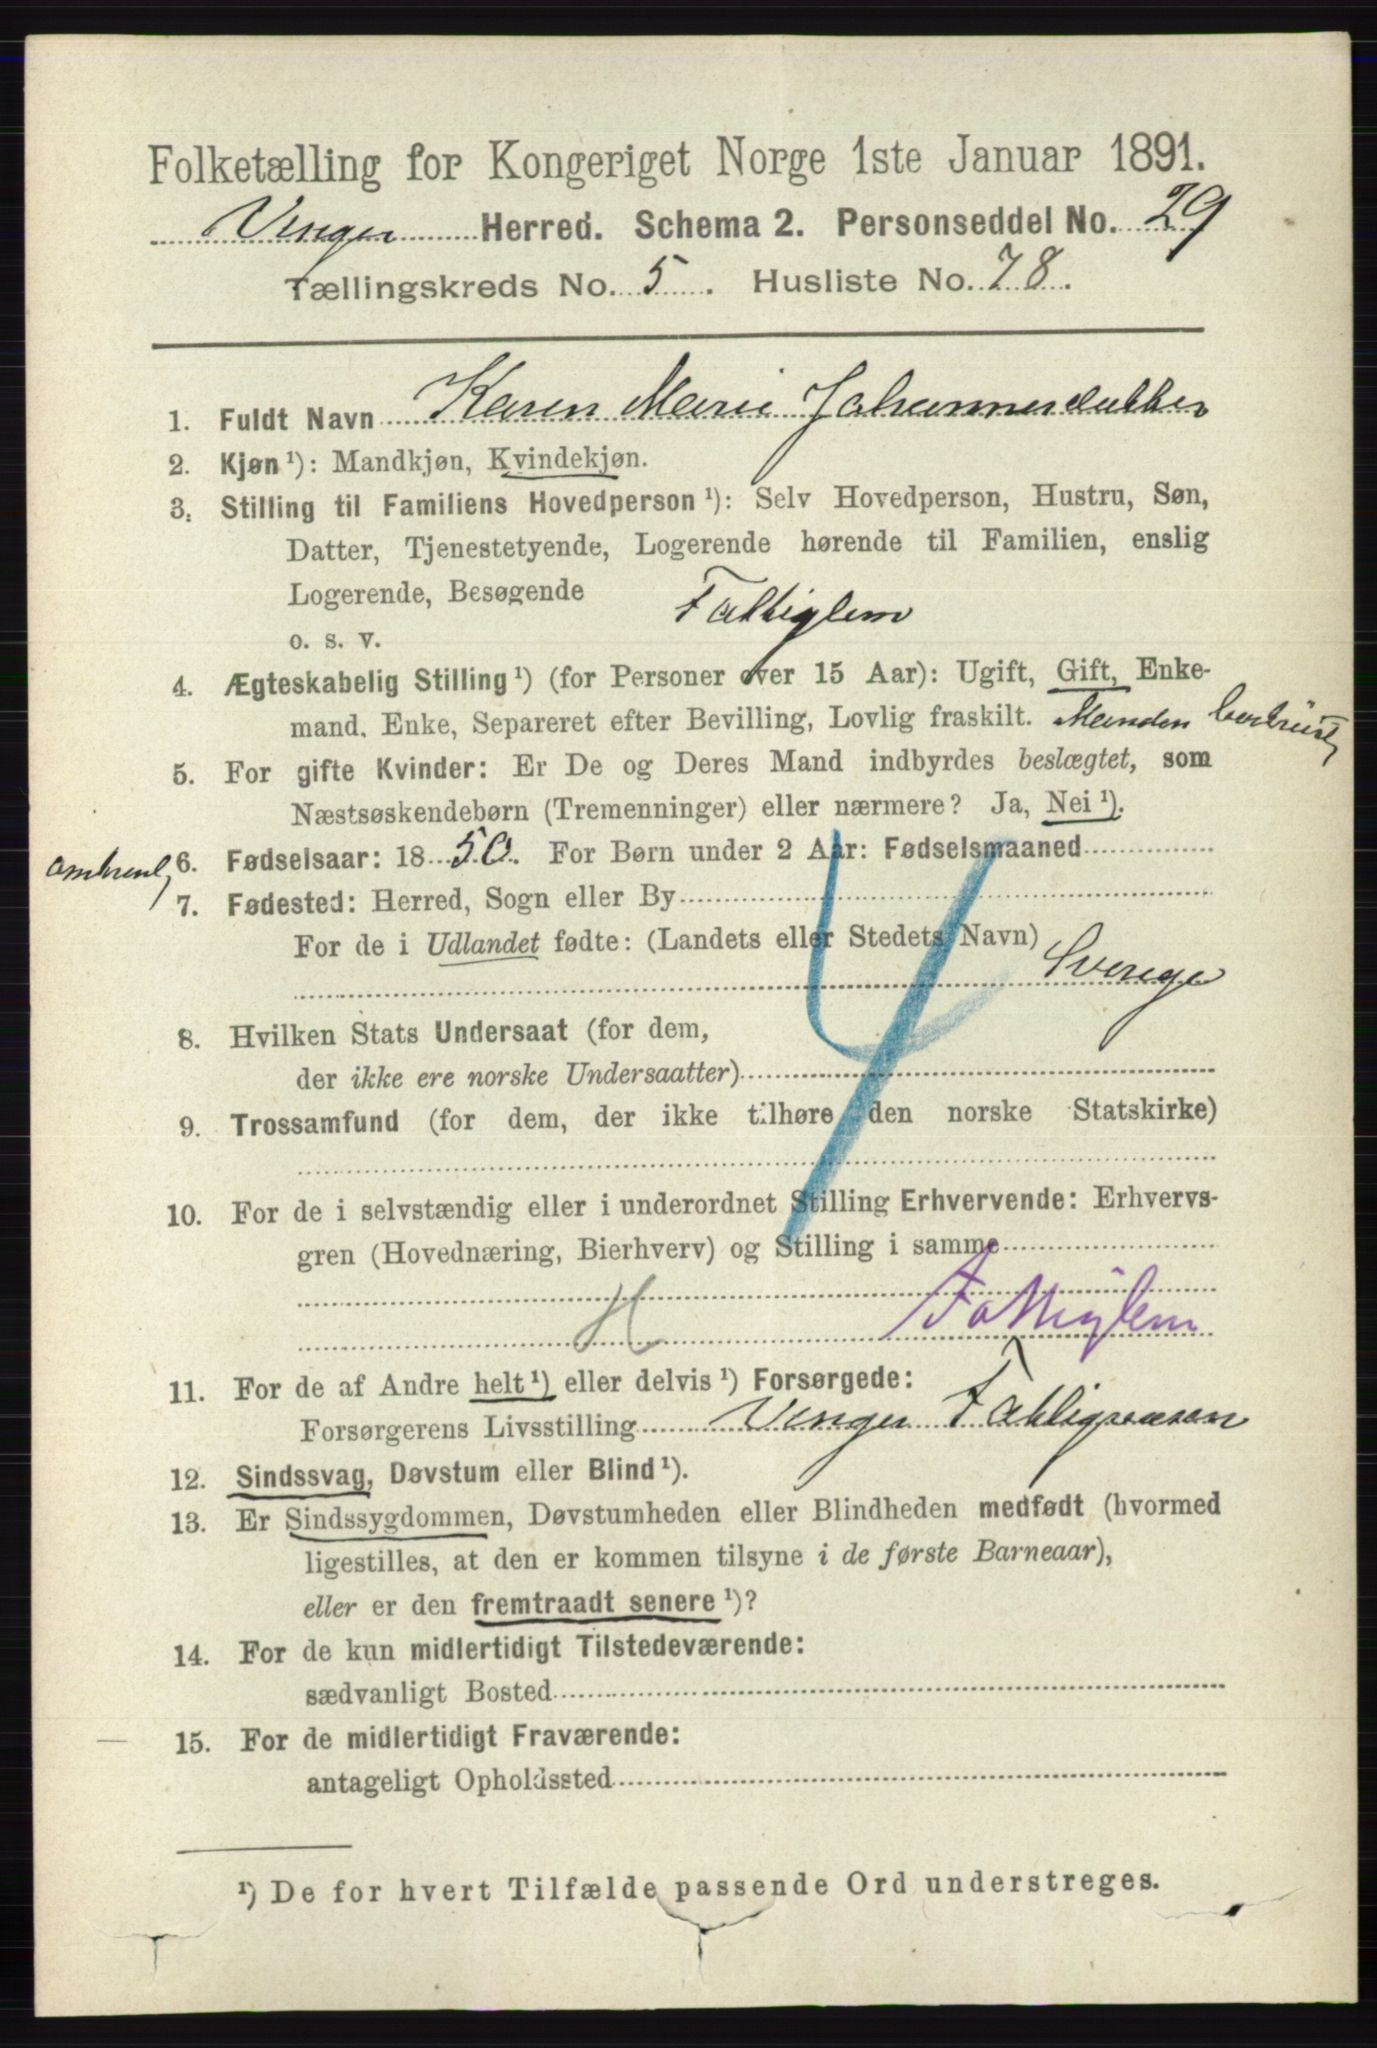 Folketælling for Kongeriget Norge 1ste Januar 1891.
Vinger Herred. Schema 2. Personseddel No. 29
Tællingskreds No. 5. Husliste No. 78.
1. Fuldt Navn Karen Marie Johannesdatter
2. Kjøn ¹): Mandkjøn, Kvindekjøn.
3. Stilling til Familiens Hovedperson ¹): Selv Hovedperson, Hustru, Søn,
Datter, Tjenestetyende, Logerende hørende til Familien, enslig
Logerende, Besøgende
o. s. v. Fattiglem
4. Ægteskabelig Stilling ¹) (for Personer over 15 Aar): Ugift, Gift, Enke-
mand, Enke, Separeret efter Bevilling, Lovlig fraskilt. Manden bortreist
5. For gifte Kvinder: Er De og Deres Mand indbyrdes beslægtet, som
Næstsøskendebørn (Tremenninger) eller nærmere? Ja, Nei ¹).
omtrent 6. Fødselsaar: 1850. For Børn under 2 Aar: Fødselsmaaned
7. Fødested: Herred, Sogn eller By
For de i Udlandet fødte: (Landets eller Stedets Navn)
Sverige
8. Hvilken Stats Undersaat (for dem,
der ikke ere norske Undersaatter)
9. Trossamfund (for dem, der ikke tilhøre den norske Statskirke)
10. For de i selvstændig eller i underordnet Stilling Erhvervende: Erhvervs-
gren (Hovednæring, Bierhverv) og Stilling i samme
H Fattiglem
11. For de af Andre helt ¹) eller delvis ¹) Forsørgede:
Forsørgerens Livsstilling Vinger Fattigvæsen
12. Sindssvag, Døvstum eller Blind ¹).
13. Er Sindssygdommen, Døvstumheden eller Blindheden medfødt (hvormed
ligestilles, at den er kommen tilsyne i de første Barneaar),
eller er den fremtraadt senere ¹)?
14. For de kun midlertidigt Tilstedeværende:
sædvanligt Bosted
15. For de midlertidigt Fraværende:
antageligt Opholdssted
¹) De for hvert Tilfælde passende Ord understreges.